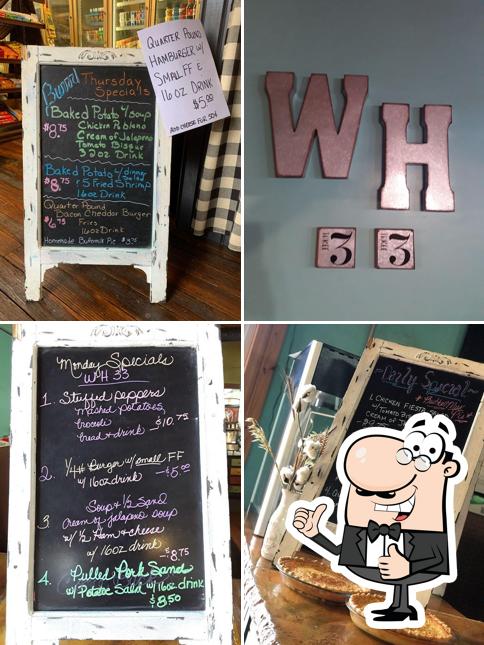 Thursday
Specials
Baked Potato w/soup
$8.75
Chicken Poblano
Cream of Jalapeno
Tomato Bisque
32oz Drink
Baked Potato w/dinner
Salad
$8.75 + 5 Fried Shrimp
16oz Drink
Quarter Pound
Bacon Cheddar Burger
$6.75 Fries
16oz Drink
Homemade Buttermilk Pie $3.75
QUARTER POUND
HAMBURGER W/
SMALL FF &
16 OZ DRINK
$5.00
ADD CHEESE FOR 50¢
WH
3 3
THREE
Monday Specials
WH 33
1. Stuffed peppers
mashed potatoes,
brocoli
bread + drink - $10.75
2. 1/4# Burger w/ small FF
w/ 16oz drink - $5.00
3 Soup & 1/2 Sand
Cream of Jalapeno soup
w/ 1/2 Ham & cheese
w/ 16oz drink
- $8.75
4. Pulled Pork Sand
w/ Potatoe Salad w/ 16oz drink
$8.50
Daily Special
1. CHICKEN FIESTA
TOMATO
CREAM OF